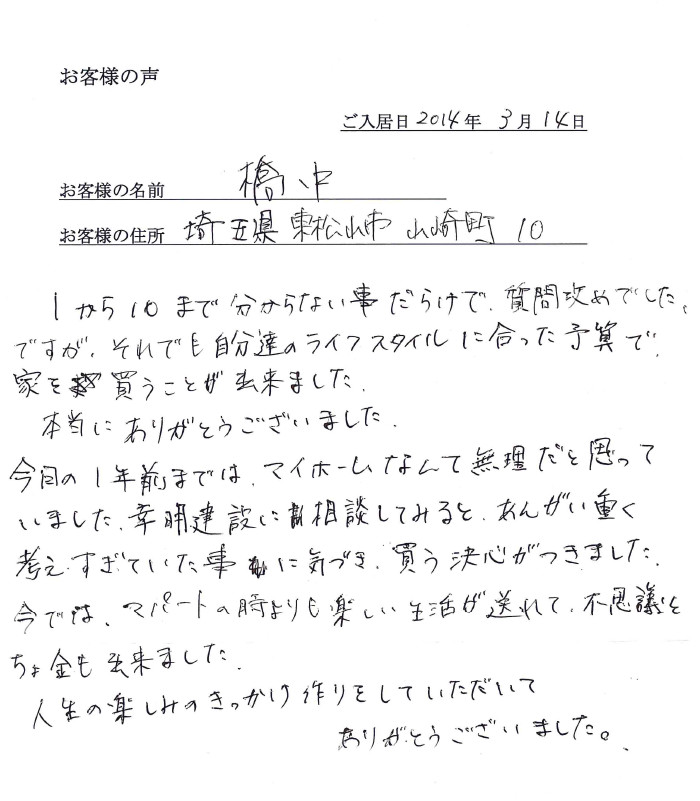 お客様の声
ご入居日 2014年 3月 14日
お客様の名前 橋中
お客様の住所 埼玉県 東松山市 山崎町 10
1から10まで分からない事だらけで、質問攻めでした。
ですが、それでも自分達のライフスタイルに合った予算で、
家を買うことが出来ました。
本当にありがとうございました。
今回の1年前までは、マイホームなんて無理だと思って
いました。幸明建設に相談してみると、あんがい重く
考えすぎていた事に気づき、買う決心がつきました。
今では、アパートの時よりも楽しい生活が送れて、不思議と
ちょ金も出来ました。
人生の楽しみのきっかけ作りをしていただいて
ありがとうございました。